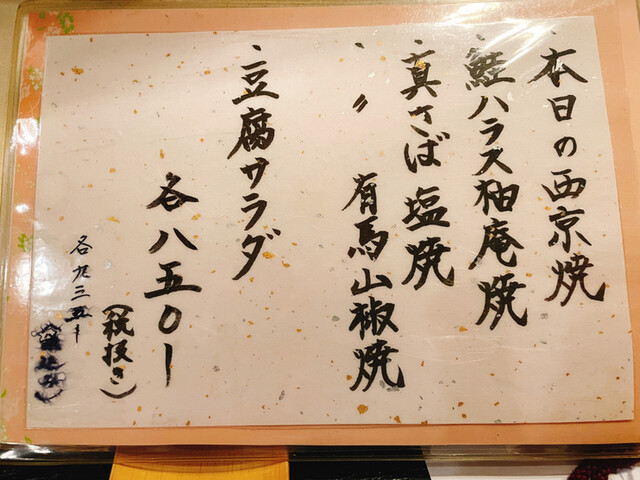 ・本日の西京焼
・鮭ハラス柚庵焼
・真さば塩焼
〃 有馬山椒焼
・豆腐サラダ
各八五〇ー
(税抜き)
各九三五ー